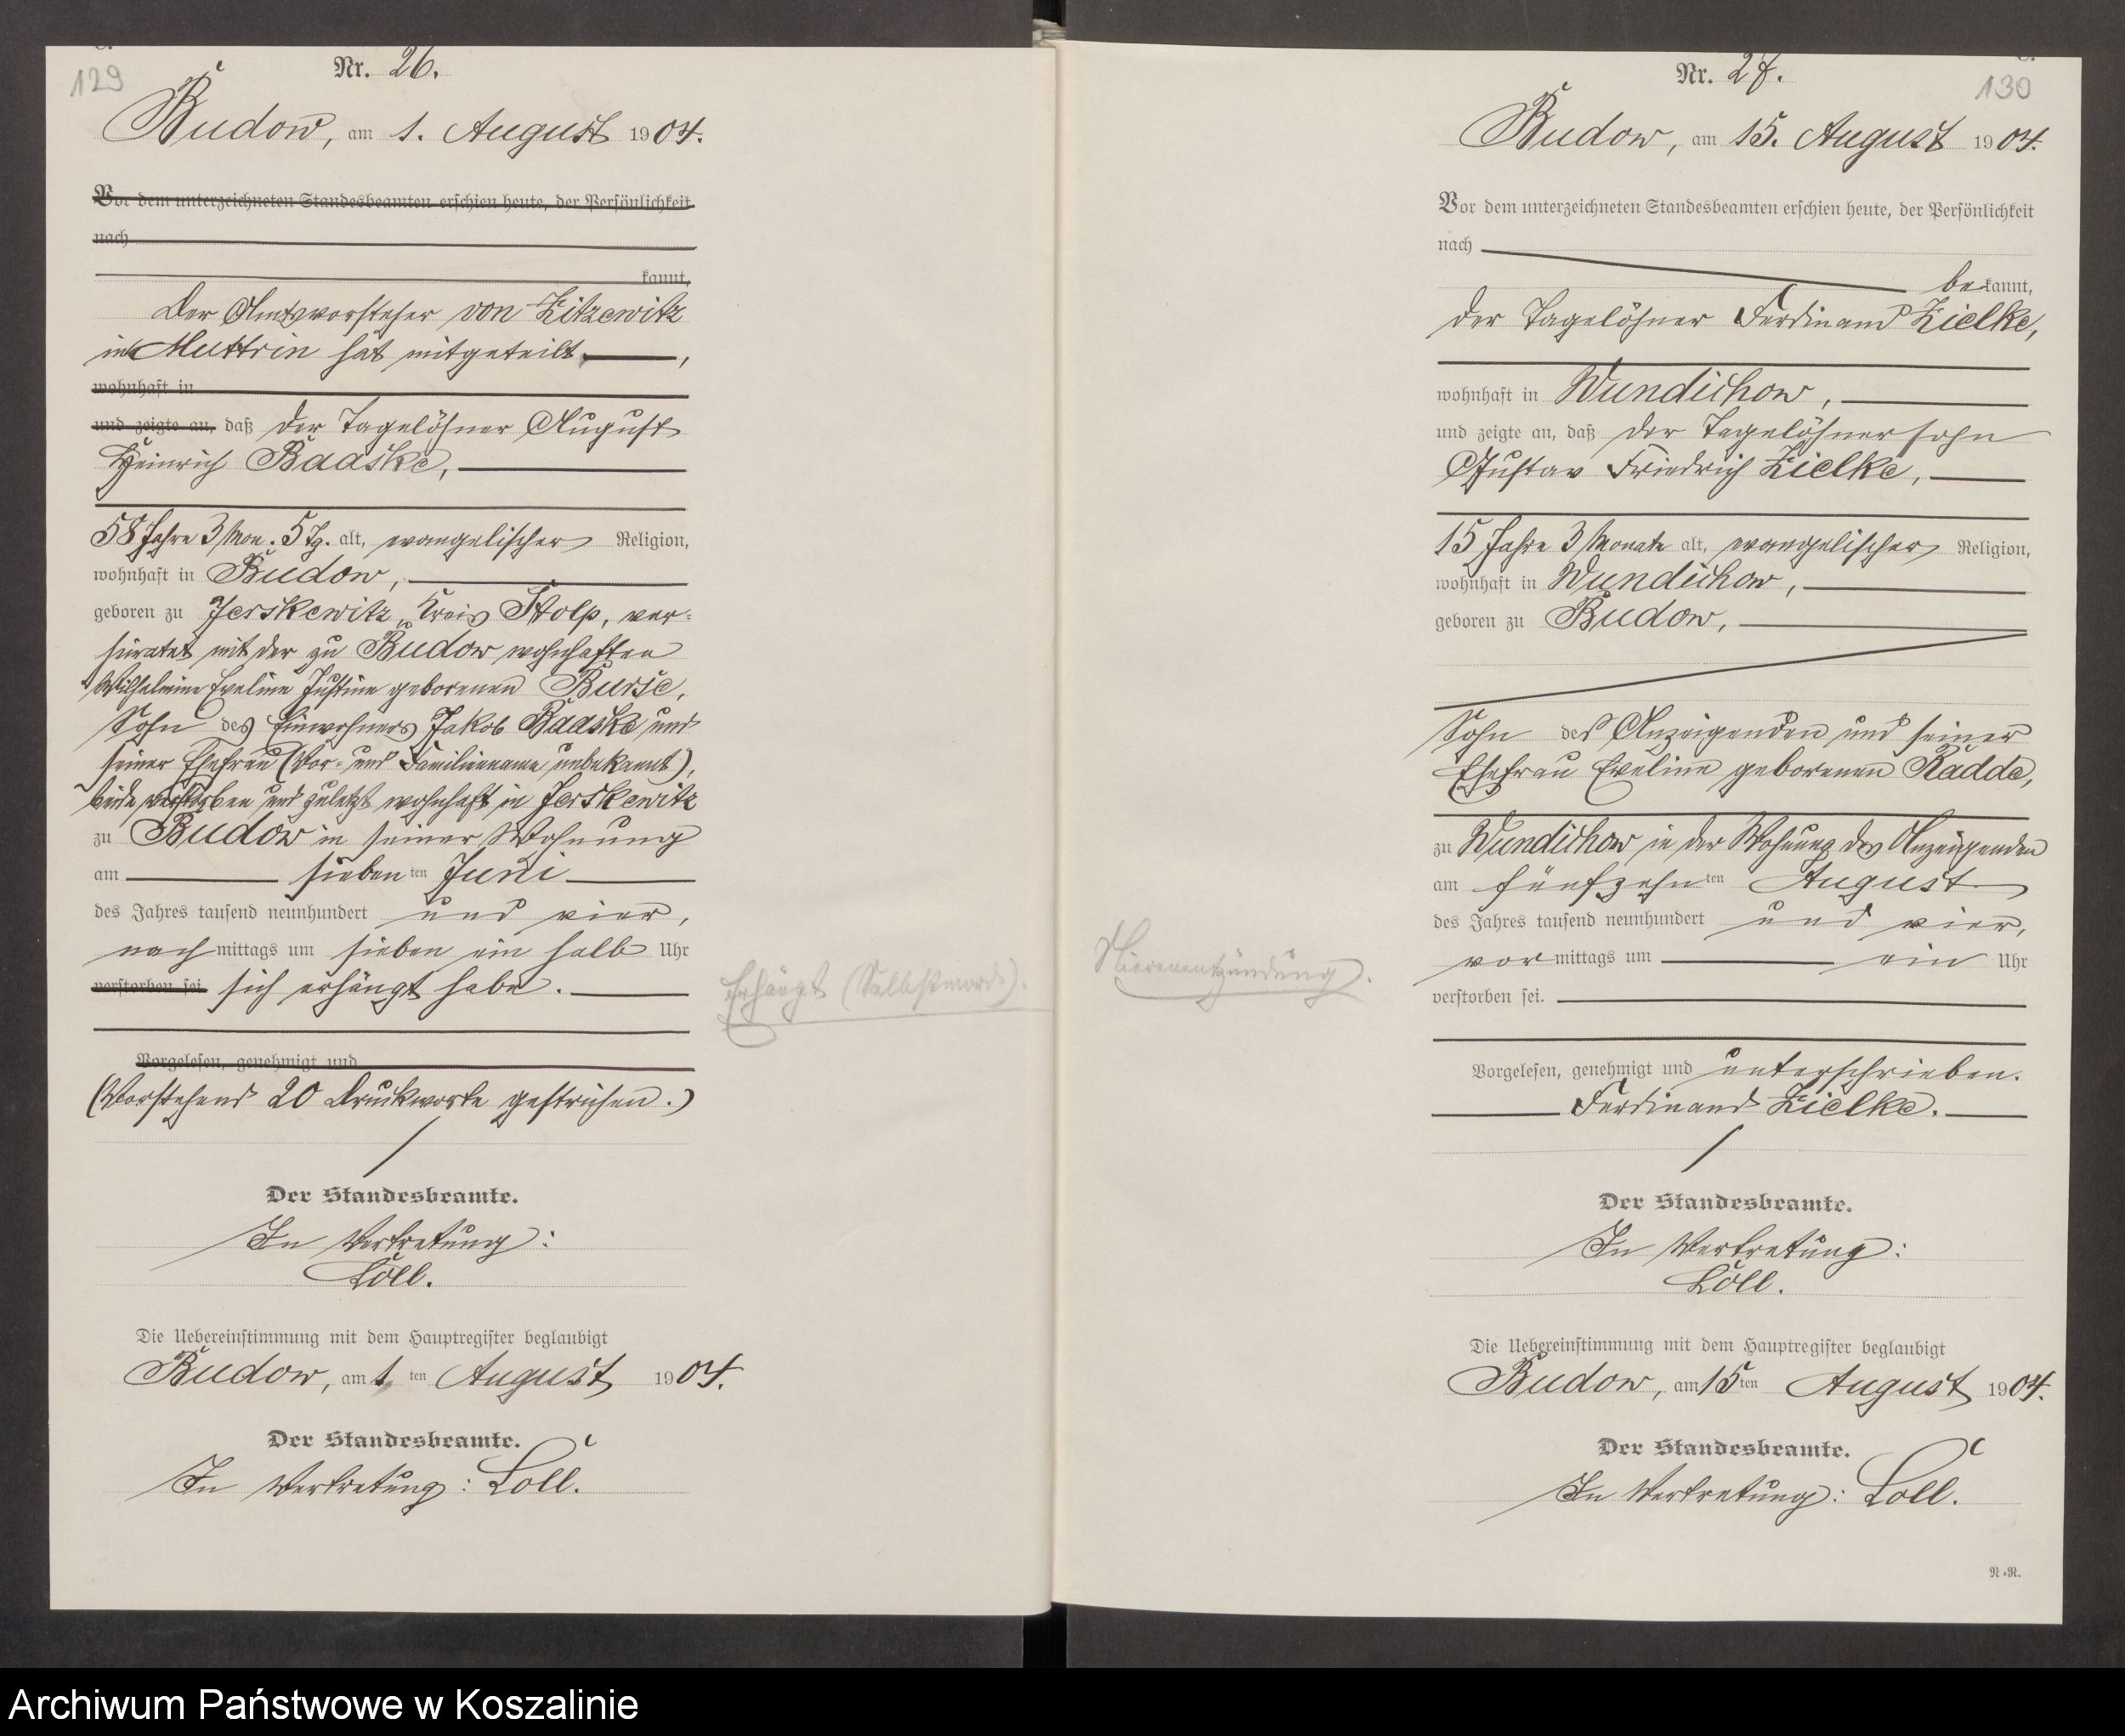 129
Nr. 26.
Budow, am 1. August 1904.
Vor dem unterzeichneten Standesbeamten erschien heute, der Persönlichkeit
nach
kannt,
Der Amtsvorsteher von Zitzewitz
in Muttrin hat mitgeteilt,
wohnhaft in
und zeigte an, daß der Tagelöhner August
Heinrich Baaske,
58 Jahre 3 Mon. 5 Tg. alt, evangelischer Religion,
wohnhaft in Budow,
geboren zu Jerskewitz, Kreis Stolp, ver-
heiratet mit der zu Budow wohnhaften
Wilhelmine Eveline Justine geborenen Burse,
Sohn des Einwohners Jakob Baaske und
seiner Ehefrau (Vor- und Familienname unbekannt),
beide verstorben und zuletzt wohnhaft in Jerskewitz
zu Budow in seiner Wohnung
am sieben ten Juni
des Jahres tausend neunhundert und vier,
nach mittags um sieben ein halb Uhr
verstorben sei sich erhängt habe.
Erhängt (Selbstmord).
Vorgelesen, genehmigt und
(Vorstehend 20 Druckworte gestrichen.)
Der Standesbeamte.
In Vertretung:
Loll.
Die Uebereinstimmung mit dem Hauptregister beglaubigt
Budow, am 1. ten August 1904.
Der Standesbeamte.
In Vertretung: Loll.
130
Nr. 27.
Budow, am 15. August 1904.
Vor dem unterzeichneten Standesbeamten erschien heute, der Persönlichkeit
nach
bekannt,
der Tagelöhner Ferdinand Zielke,
wohnhaft in Wundichow,
und zeigte an, daß der Tagelöhnersohn
Gustav Friedrich Zielke,
15 Jahre 3 Monate alt, evangelischer Religion,
wohnhaft in Wundichow,
geboren zu Budow,
Sohn des Anzeigenden und seiner
Ehefrau Eveline geborenen Radde,
zu Wundichow in der Wohnung des Anzeigenden
am fünfzehn ten August
des Jahres tausend neunhundert und vier,
vor mittags um ein Uhr
verstorben sei.
Nierenentzündung.
Vorgelesen, genehmigt und unterschrieben.
Ferdinand Zielke.
Der Standesbeamte.
In Vertretung:
Loll.
Die Uebereinstimmung mit dem Hauptregister beglaubigt
Budow, am 15 ten August 1904.
Der Standesbeamte.
In Vertretung: Loll.
N.N.
Archiwum Państwowe w Koszalinie